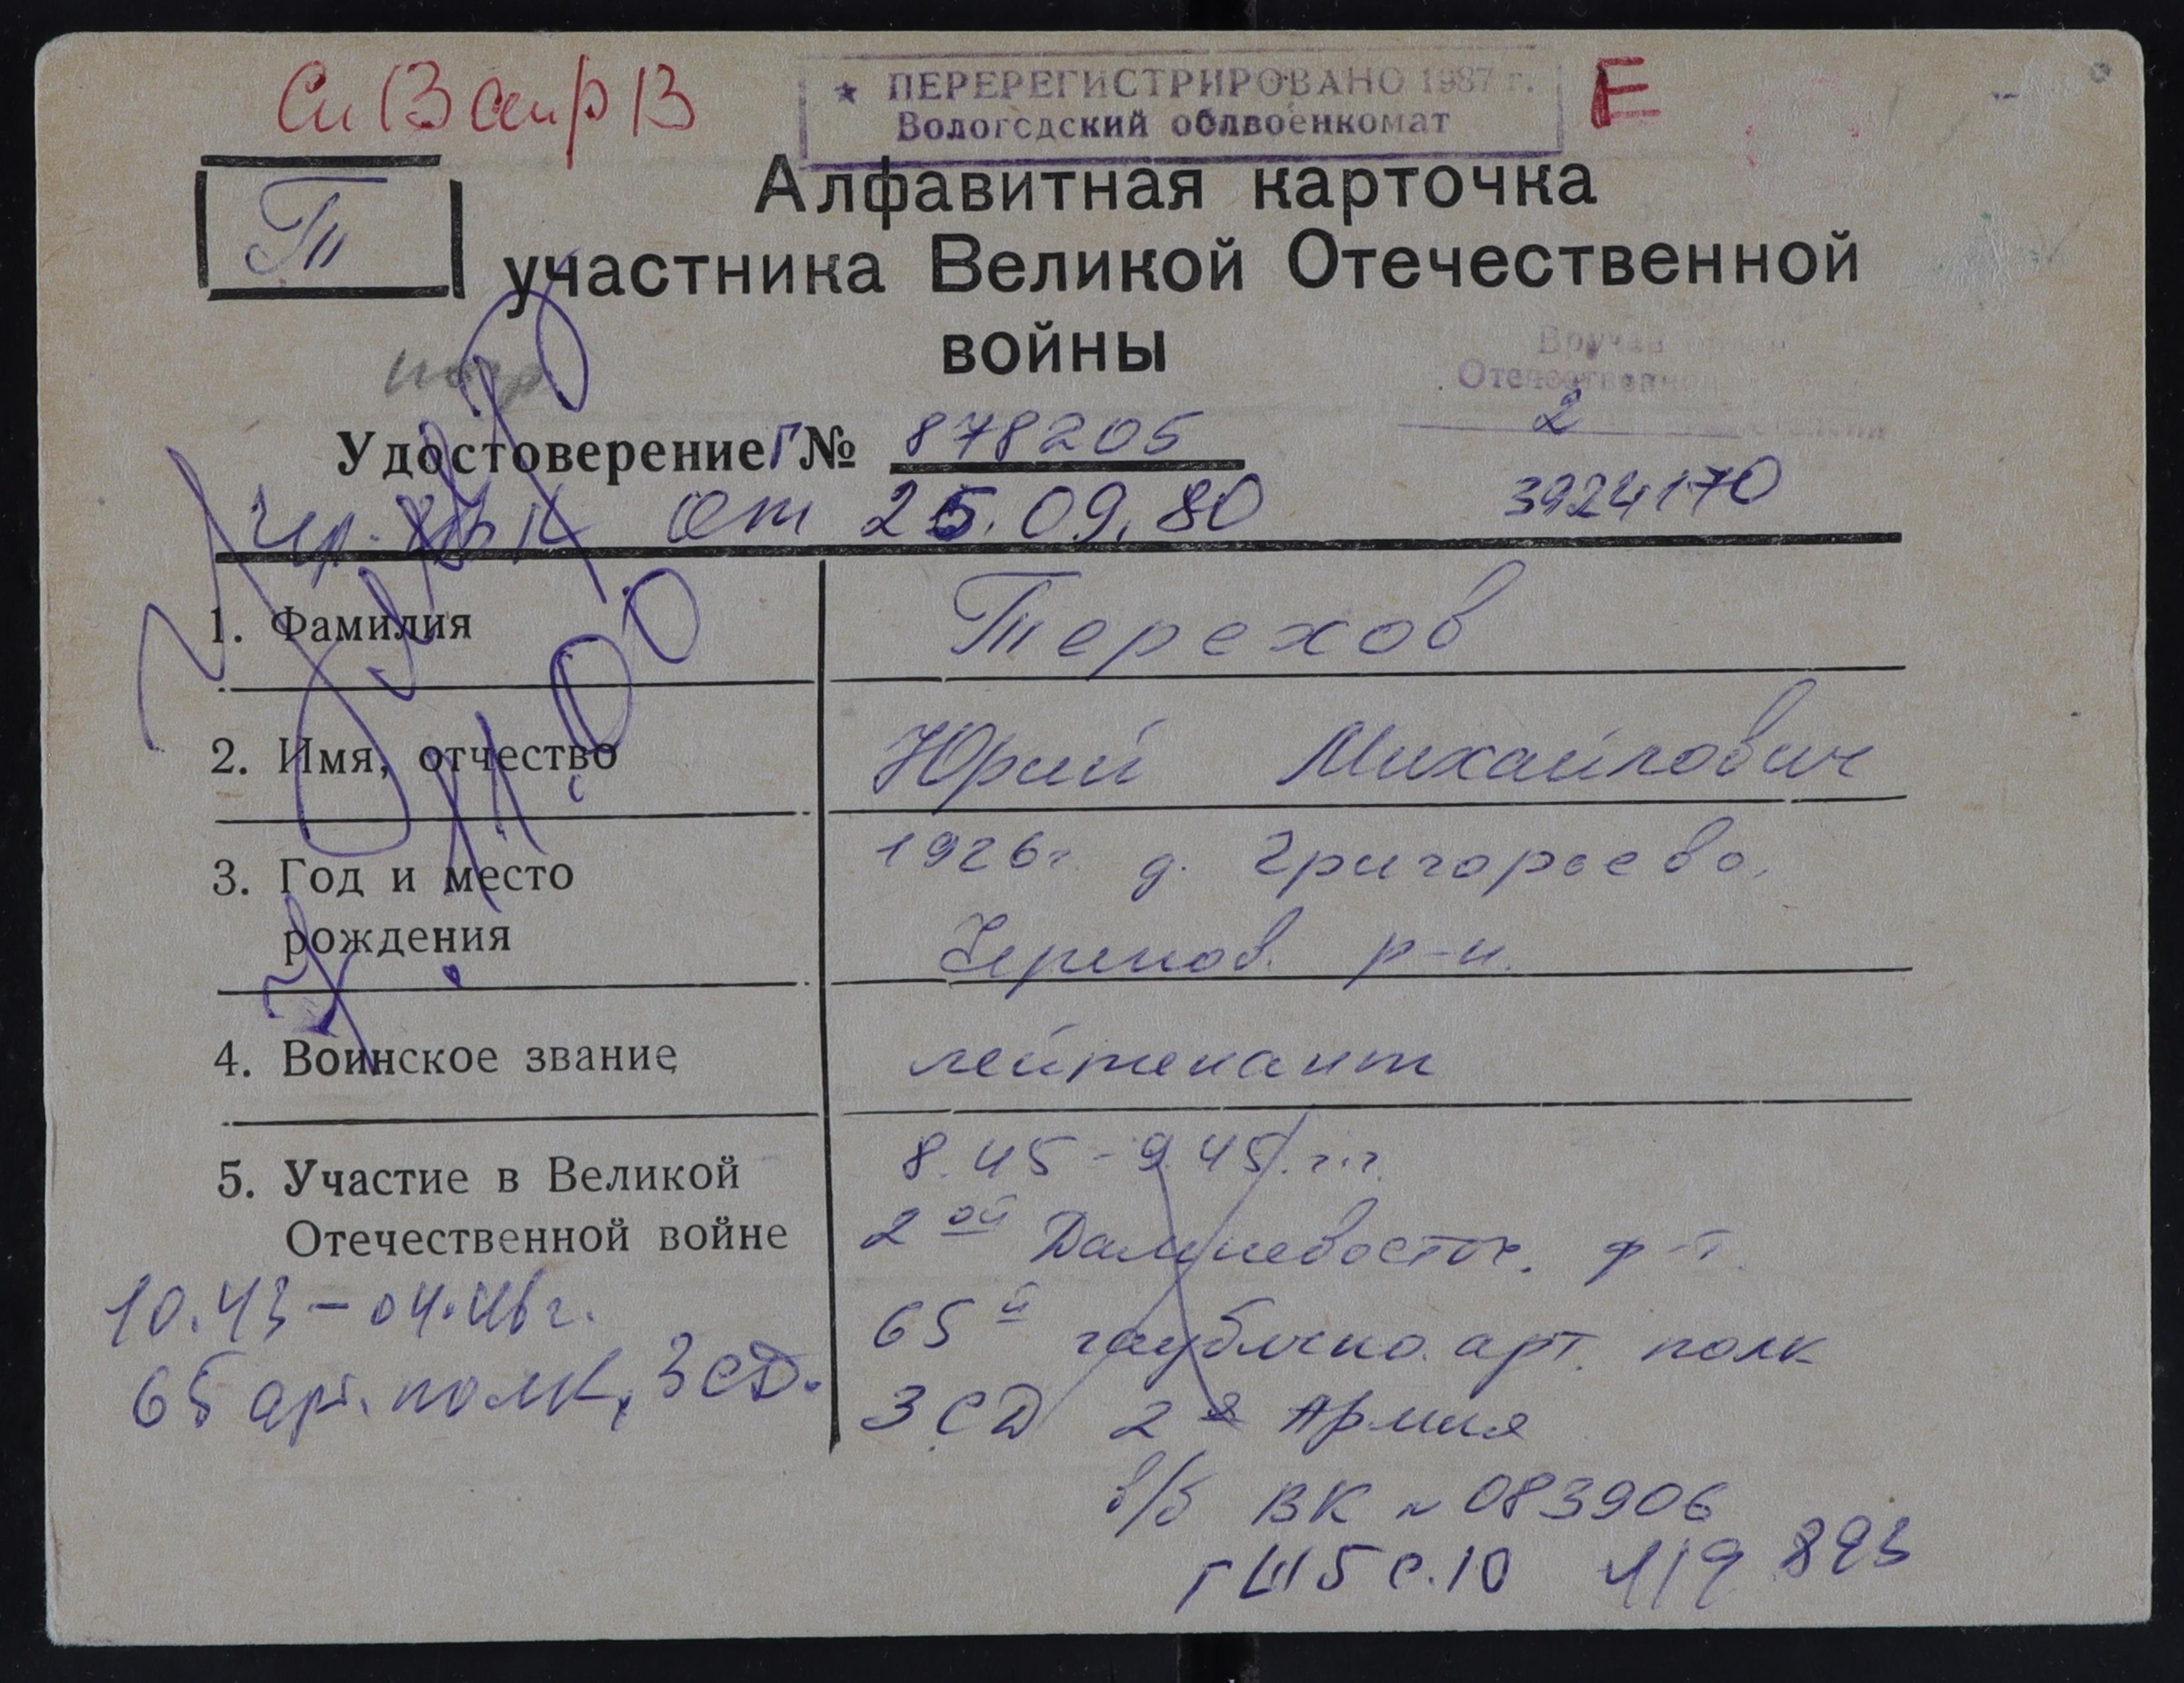 ★ ПЕРЕРЕГИСТРИРОВАНО 1987 г.
Вологодский облвоенкомат
Е
Т
Алфавитная карточка
участника Великой Отечественной
войны
Отечественной
2
Удостоверение Г № 878205
от 25.09.80
3924170
1. Фамилия
Терехов
2. Имя, отчество
Юрий Михайлович
3. Год и место
рождения
1926г д. Григорьево,
Черепов. р-н.
4. Воинское звание
лейтенант
5. Участие в Великой
Отечественной войне
8.45-9.45.г.г.
2ой Дальневосточ. ф-т.
65й гаубично. арт. полк
3 СД 2я Армия
10.43-04.46г.
65 арт. полк, 3 СД.
в/б ВК № 083906
ГШ 5 с.10 119 893